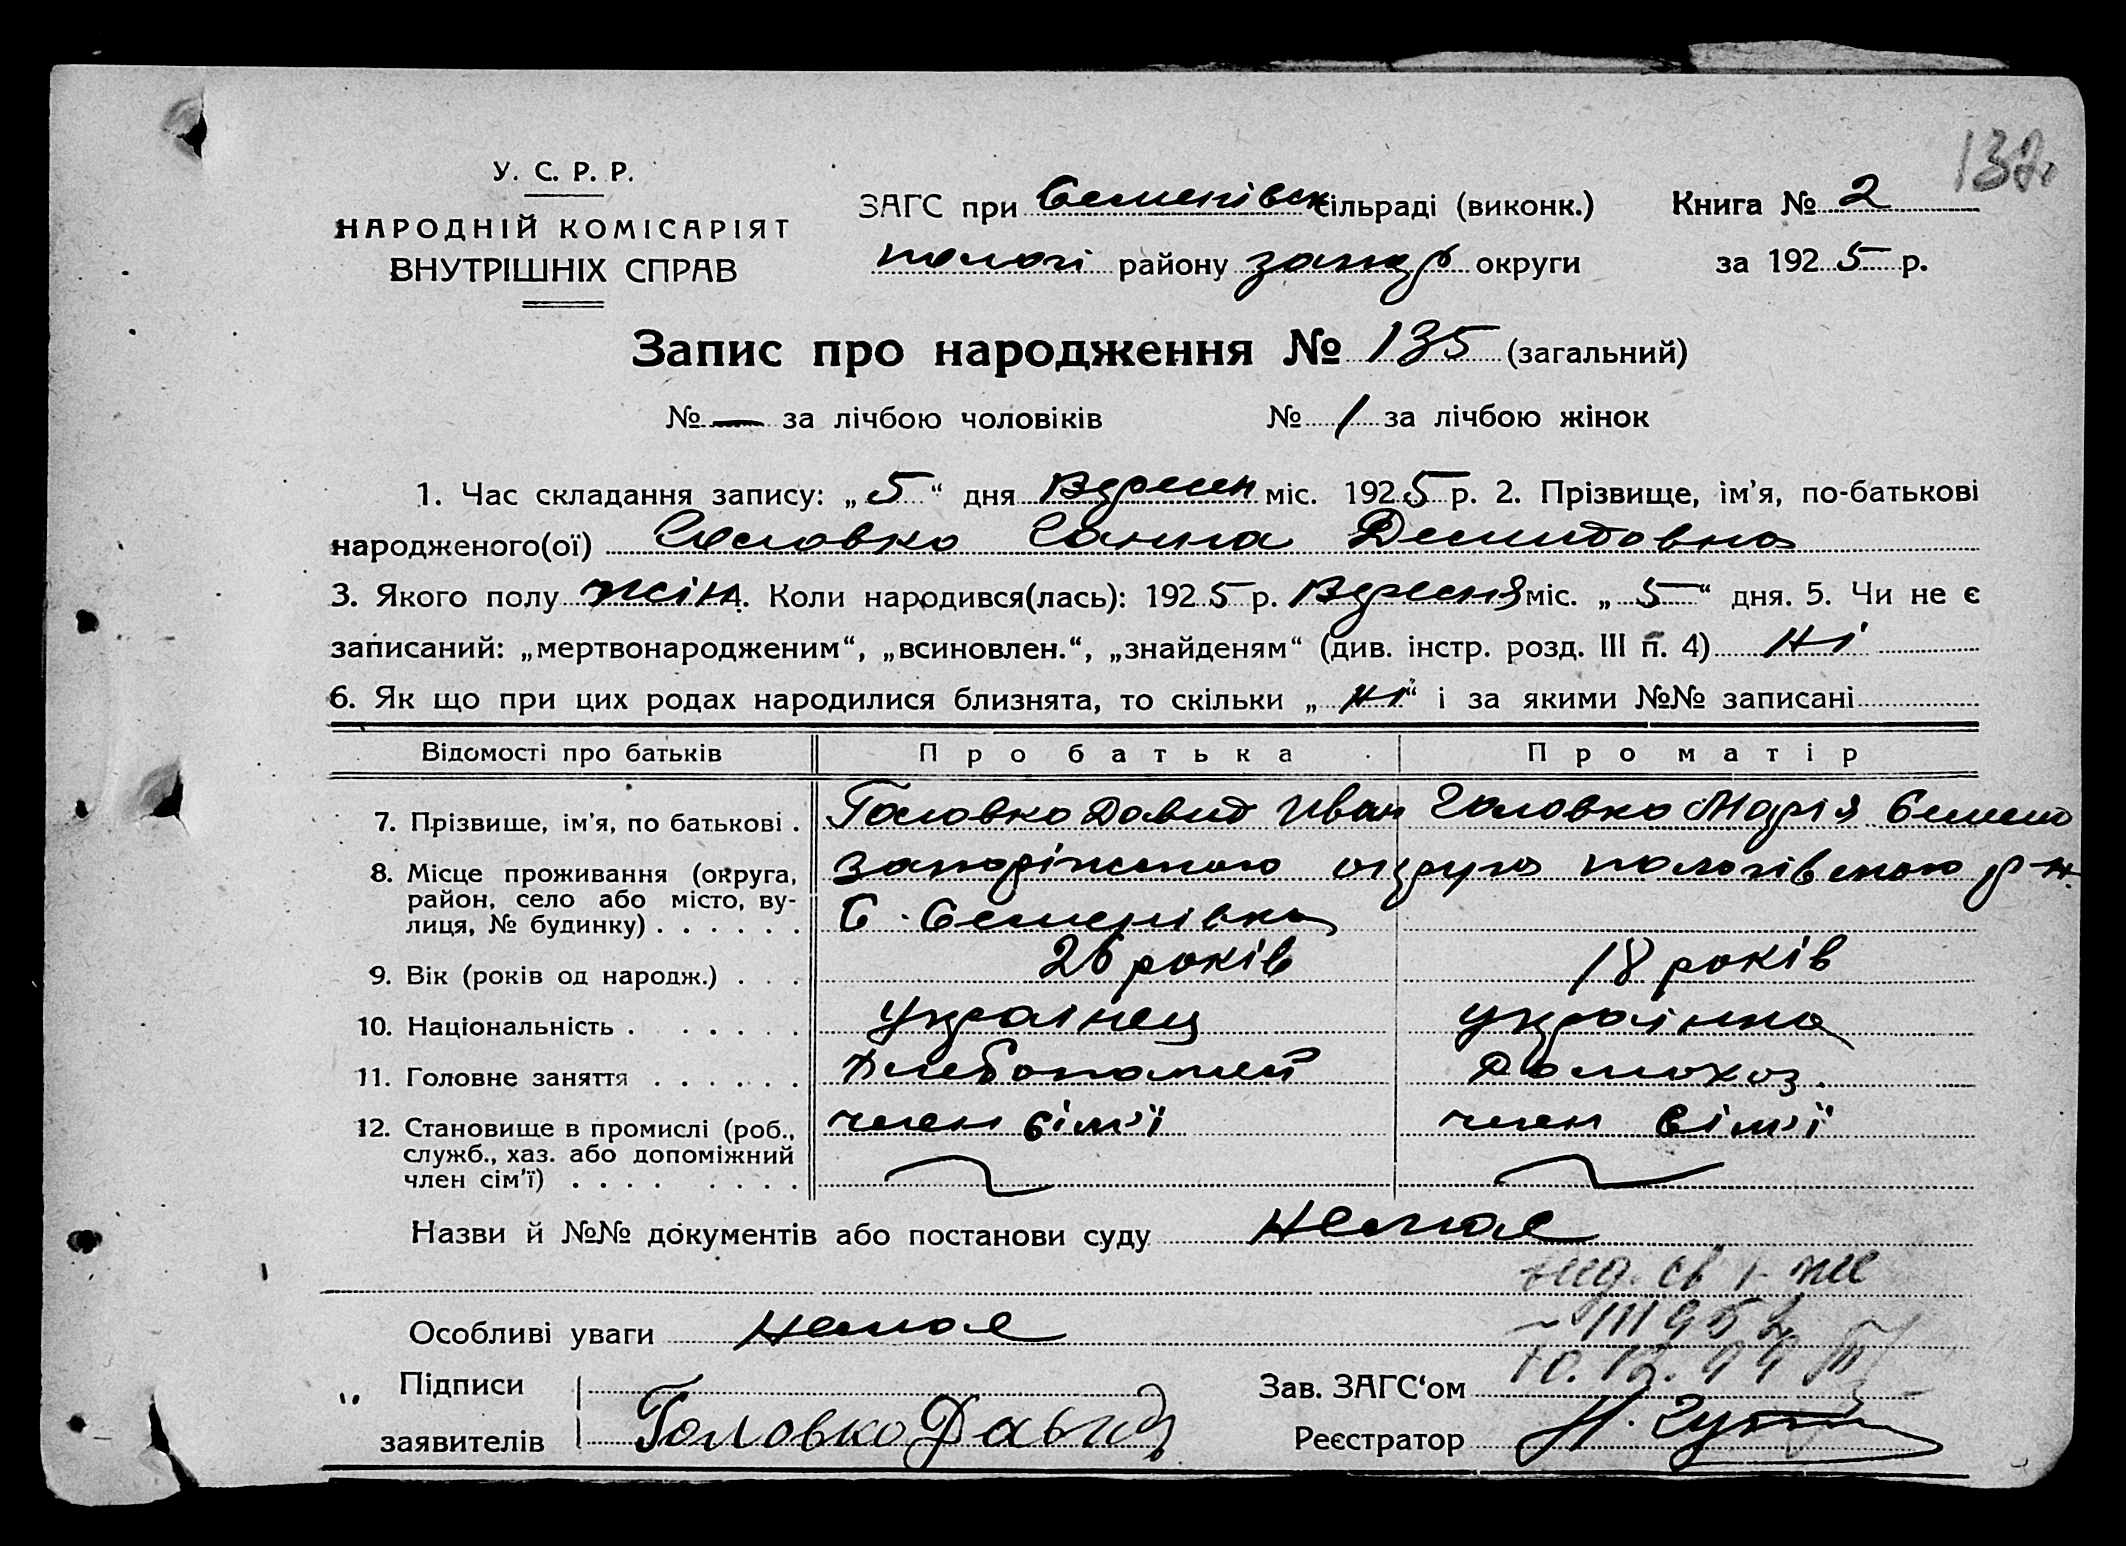 132.
У. С. Р. Р.
НАРОДНІЙ КОМІСАРІЯТ
ВНУТРІШНІХ СПРАВ
ЗАГС при Семенівск сільраді (виконк.) Книга № 2
пологі району запор округи за 1925 р.
Запис про народження № 135 (загальний)
№ — за лічбою чоловіків № 1 за лічбою жінок
1. Час складання запису: „5“ дня Вересен міс. 1925 р. 2. Прізвище, ім’я, по-батькові
народженого(ої) Головко Ганна Демидовна
3. Якого полу жін 4. Коли народився(лась): 1925 р. Вересня міс. „5“ дня. 5. Чи не є
записаний: „мертвонародженим“, „всиновлен.“, „знайденям“ (див. інстр. розд. III п. 4) ні
6. Як що при цих родах народилися близнята, то скільки „ні“ і за якими №№ записані
Відомості про батьків Про батька Про матір
7. Прізвище, ім’я, по батькові . Головко Давид Иван Головко Марія Семен
8. Місце проживання (округа, район, село або місто, вулиця, № будинку) . . . . . . Запоріжською округи пологівською р-н.
С. Семенівка
9. Вік (років од народж.) . . . 26 років 18 років
10. Національність . . . . . . Українец українка
11. Головне заняття . . . . . . Хлебопашей Домохоз.
12. Становище в промислі (роб., служб., хаз. або допоміжний член сім’ї) . . . . . . . . член сім'ї член сім'ї
Назви й №№ документів або постанови суду Немає
вид. св
Особливі уваги немає
Підписи
заявителів Головко Давид
Зав. ЗАГС‘ом
Реєстратор